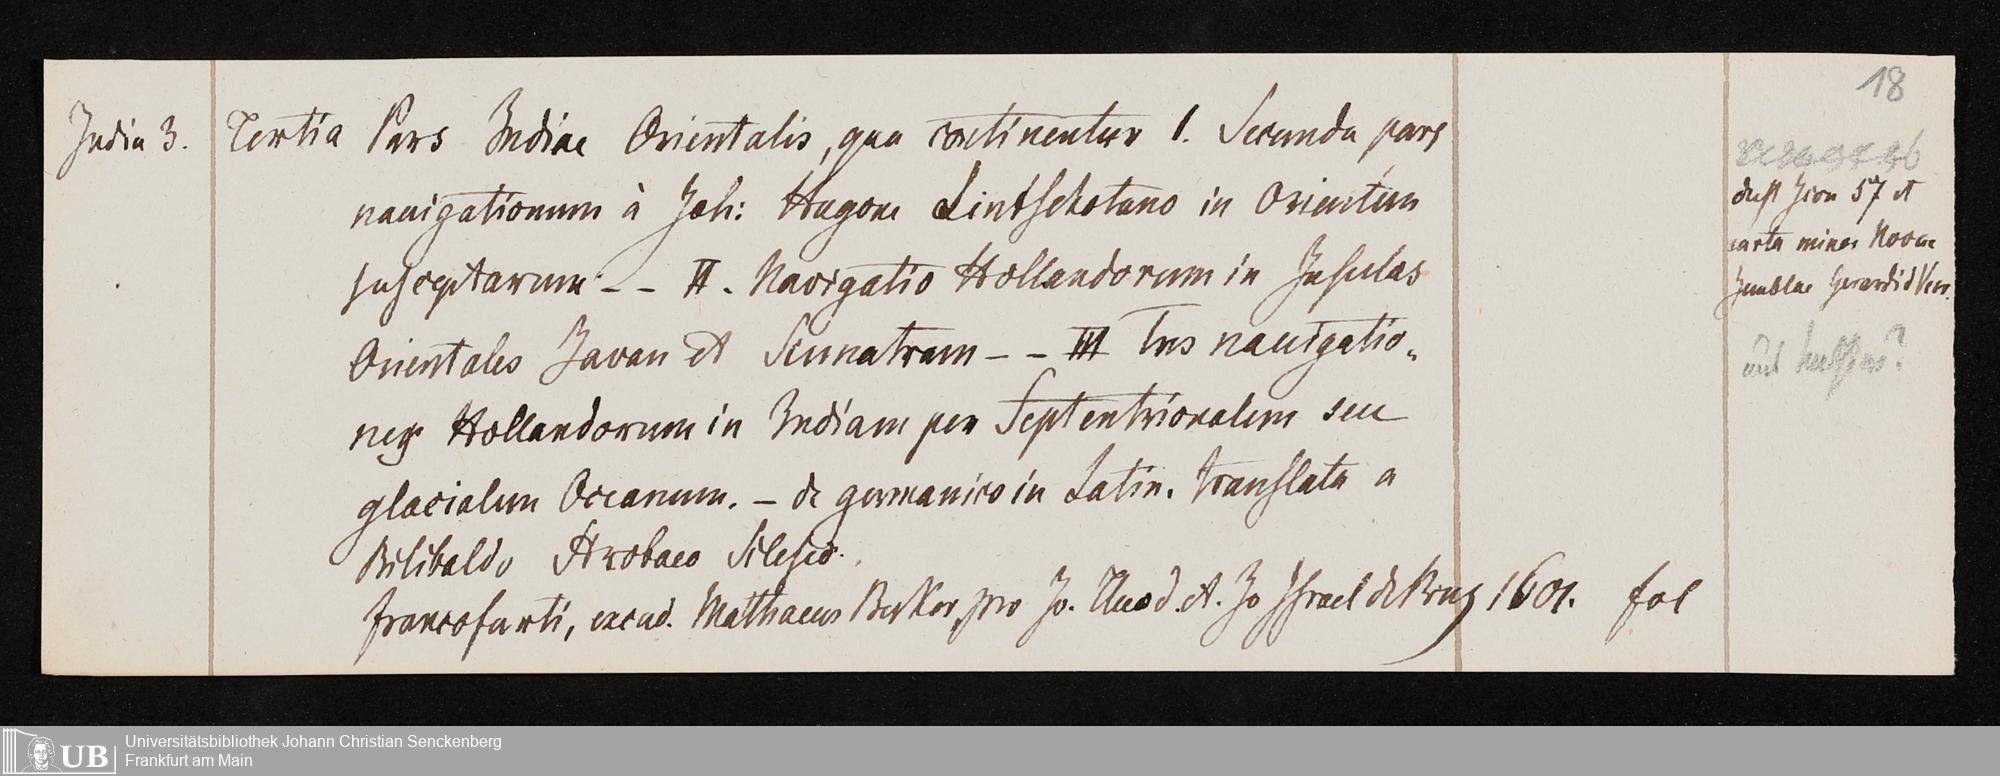 18
India 3. Tertia Pars Indiae Orientalis, qua continentur I. Secunda pars
nauigationum à Joh: Hugone Lintschotano in Orientem
susceptarum. – – II. Navigatio Hollandorum in Insulas
Orientales Javan et Sumatram – – III Tres nauigatio„
nes Hollandorum in Indiam per Septentrionalem seu
glacialem Oceanum. – de germanico in Latin. translata a
Bilibaldo Strobaeo Silesio.
Francofurti, excud. Matthaeus Becker, pro Jo. Theod. et. Jo Israel de Bry 1601. fol
dest Icon 57 et
carta minor Novae
Zemblae Gerardi d Veer.
UB
Universitätsbibliothek Johann Christian Senckenberg
Frankfurt am Main